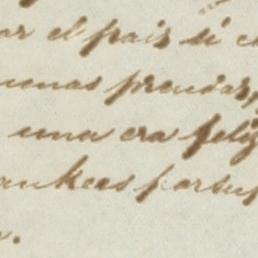 ar el pais si e
uenas prendas,
una era feliz
ankees por su